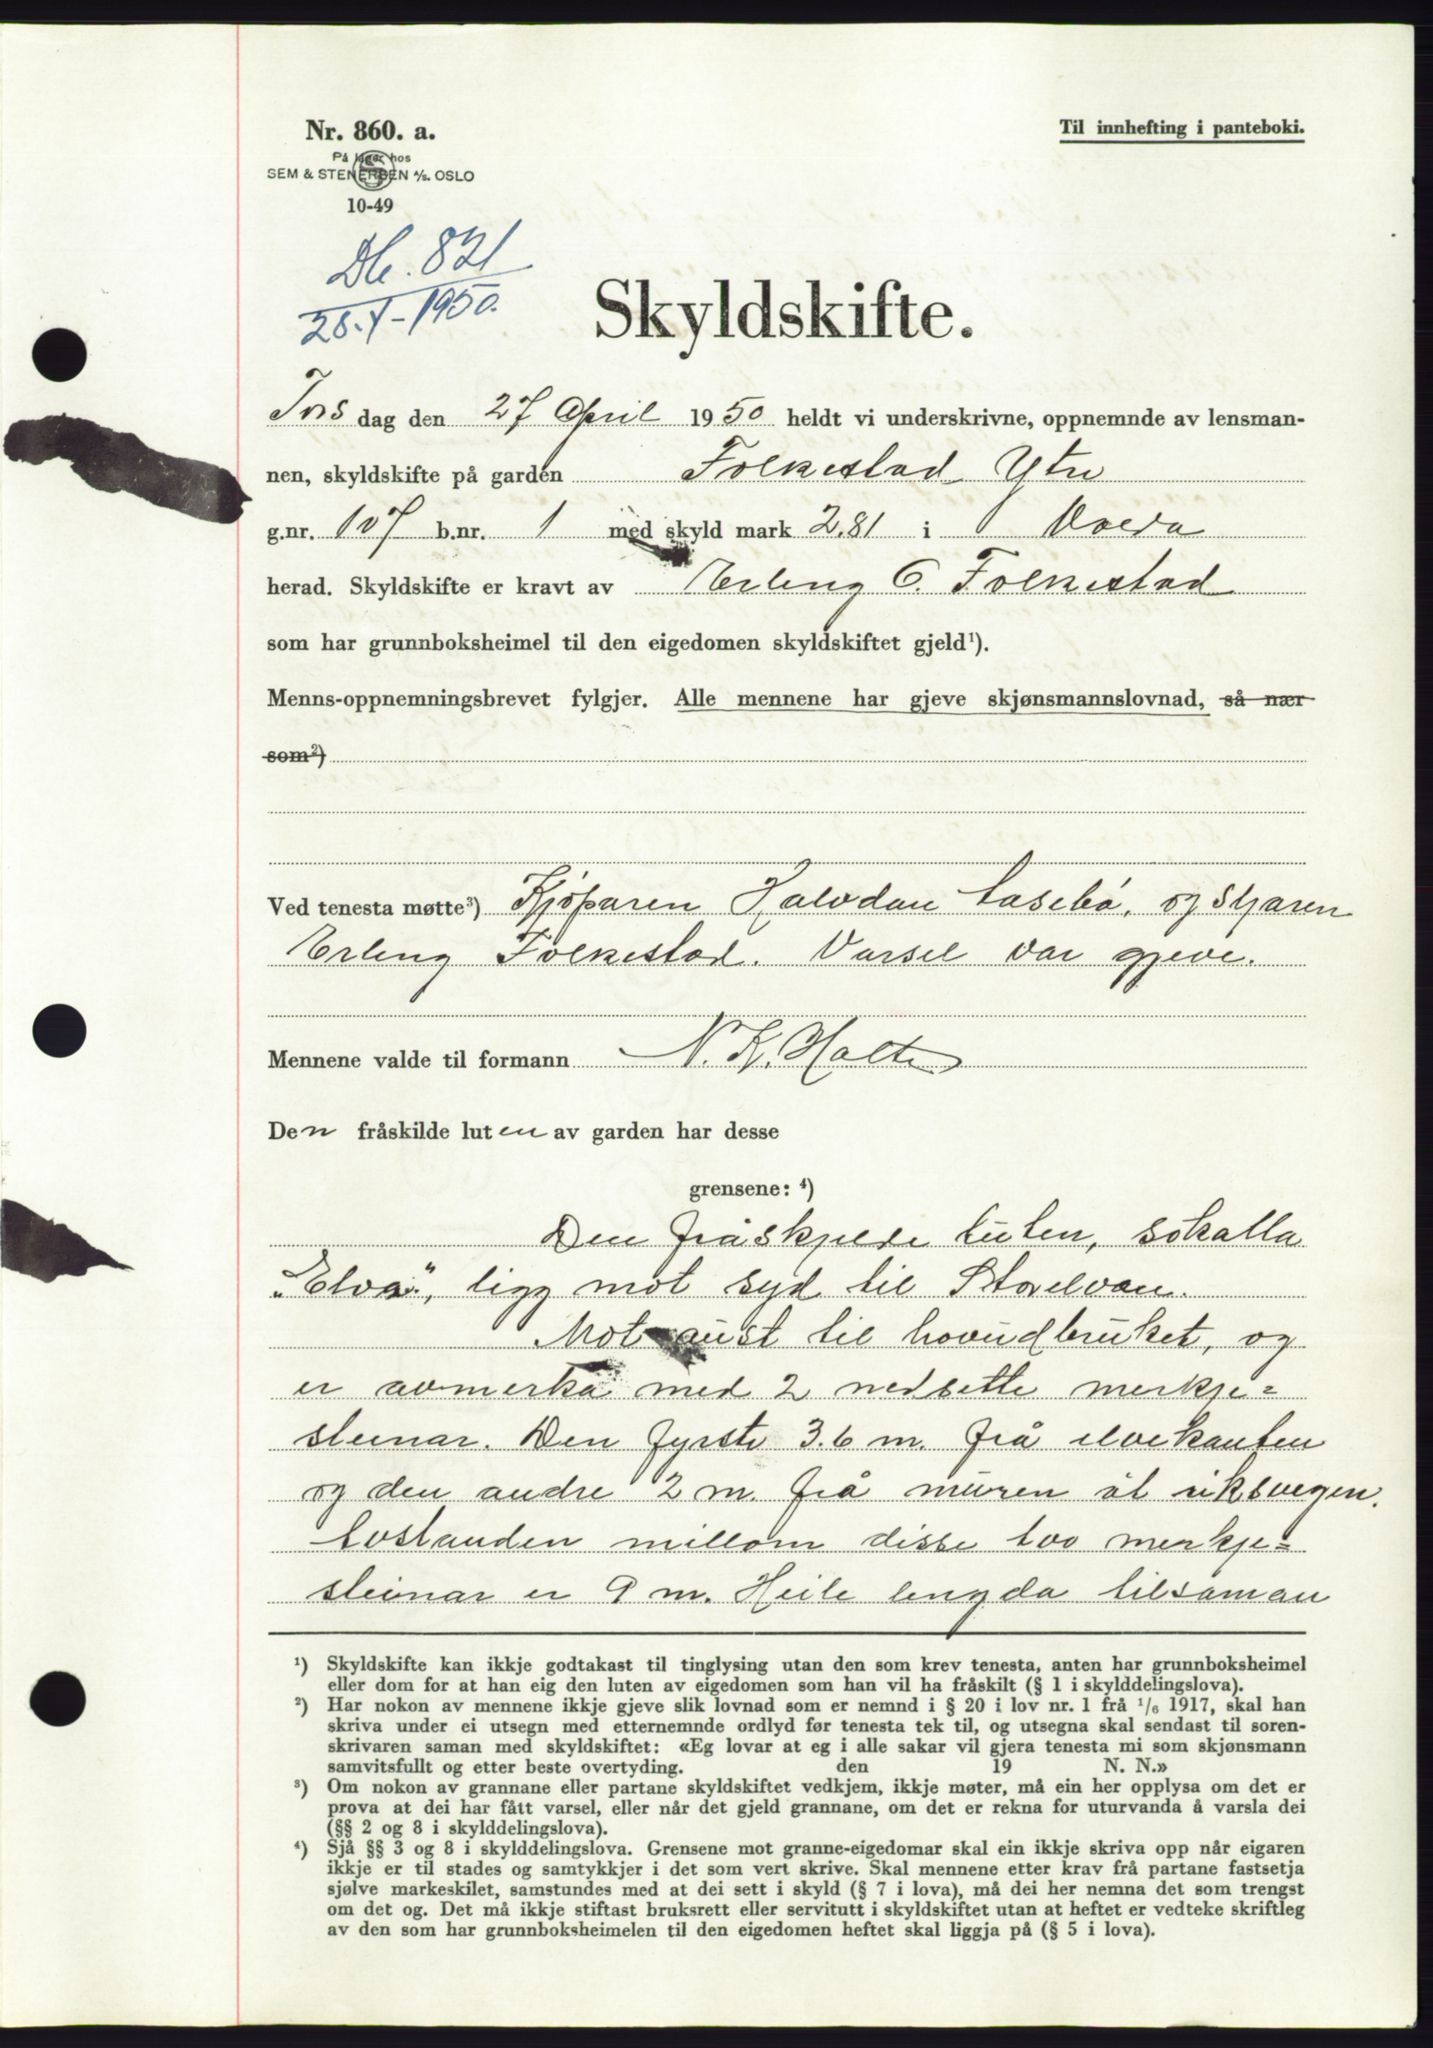 Nr. 860. a.
På lager hos
SEM & STENERSEN A/S. OSLO
10-49
Til innhefting i panteboki.
Db. 821
28.4-1950.
Skyldskifte.
Tors dag den 27 April 1950 heldt vi underskrivne, oppnemnde av lensman-
nen, skyldskifte på garden Folkestad Ytre
g.nr. 107 b.nr. 1 med skyld mark 2.81 i Volda
herad. Skyldskifte er kravt av Erling O. Folkestad
som har grunnboksheimel til den eigedomen skyldskiftet gjeld¹).
Menns-oppnemningsbrevet fylgjer. Alle mennene har gjeve skjønsmannslovnad, så nær
som²)
Ved tenesta møtte³) Kjøparen Halvdan Lasebø, og Sljaren
Erling Folkestad. Varsel var gjeve.
Mennene valde til formann N. K. Halte
Den fråskilde luten av garden har desse
grensene: ⁴)
Den fråskjelde luten, sokalla
"Elva", ligg mot syd til Storelvan.
Mot aust til hovudbruket, og
er avmerka med 2 nedsette merkje=
steinar. Den fyrste 3.6 m. frå elvekanten
og den andre 2 m. frå muren åt riksvegen.
Avstanden millom disse too merkje=
steinar er 9 m. Heile lengda tilsaman
¹) Skyldskifte kan ikkje godtakast til tinglysing utan den som krev tenesta, anten har grunnboksheimel
eller dom for at han eig den luten av eigedomen som han vil ha fråskilt (§ 1 i skylddelingslova).
²) Har nokon av mennene ikkje gjeve slik lovnad som er nemnd i § 20 i lov nr. 1 frå ¹/₆ 1917, skal han
skriva under ei utsegn med etternemnde ordlyd før tenesta tek til, og utsegna skal sendast til soren-
skrivaren saman med skyldskiftet: «Eg lovar at eg i alle sakar vil gjera tenesta mi som skjønsmann
samvitsfullt og etter beste overtyding. den 19 N. N.»
³) Om nokon av grannane eller partane skyldskiftet vedkjem, ikkje møter, må ein her opplysa om det er
prova at dei har fått varsel, eller når det gjeld grannane, om det er rekna for uturvanda å varsla dei
(§§ 2 og 8 i skylddelingslova).
⁴) Sjå §§ 3 og 8 i skylddelingslova. Grensene mot granne-eigedomar skal ein ikkje skriva opp når eigaren
ikkje er til stades og samtykkjer i det som vert skrive. Skal mennene etter krav frå partane fastsetja
sjølve markeskilet, samstundes med at dei sett i skyld (§ 7 i lova), må dei her nemna det som trengst
om det og. Det må ikkje stiftast bruksrett eller servitutt i skyldskiftet utan at heftet er vedteke skriftleg
av den som har grunnboksheimelen til den eigedomen heftet skal liggja på (§ 5 i lova).